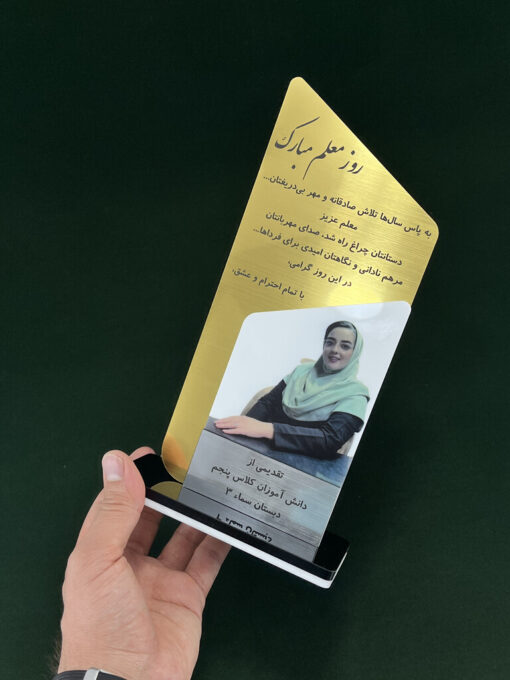 روز معلم مبارک
به پاس سال‌ها تلاش صادقانه و مهر بی‌دریغتان...
معلم عزیز
دستانتان چراغ راه شد، صدای مهربانتان
مرهم نادانی و نگاهتان امیدی برای فرداها...
در این روز گرامی،
با تمام احترام و عشق،
تقدیمی از
دانش آموزان کلاس پنجم
دبستان سماء ۳